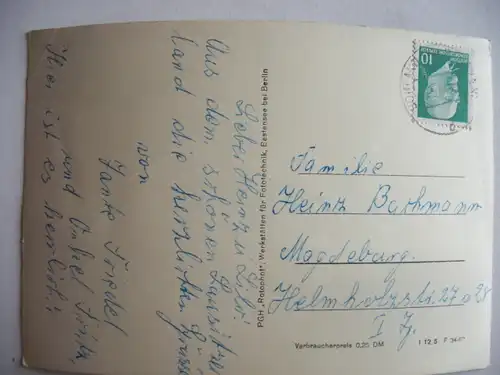 Lieber Heinz u. Lilli
Aus dem schönen Lausitzer
Land die herzlichen Grüsse
von
Tante Friedel
und Onkel
Hier ist es herrlich!
PGH „Rotophot“, Werkstätten für Fototechnik, Bestensee bei Berlin
10
Familie
Heinz Bachmann
Magdeburg
Helmholzstr. 27
Verbraucherpreis 0,25 DM